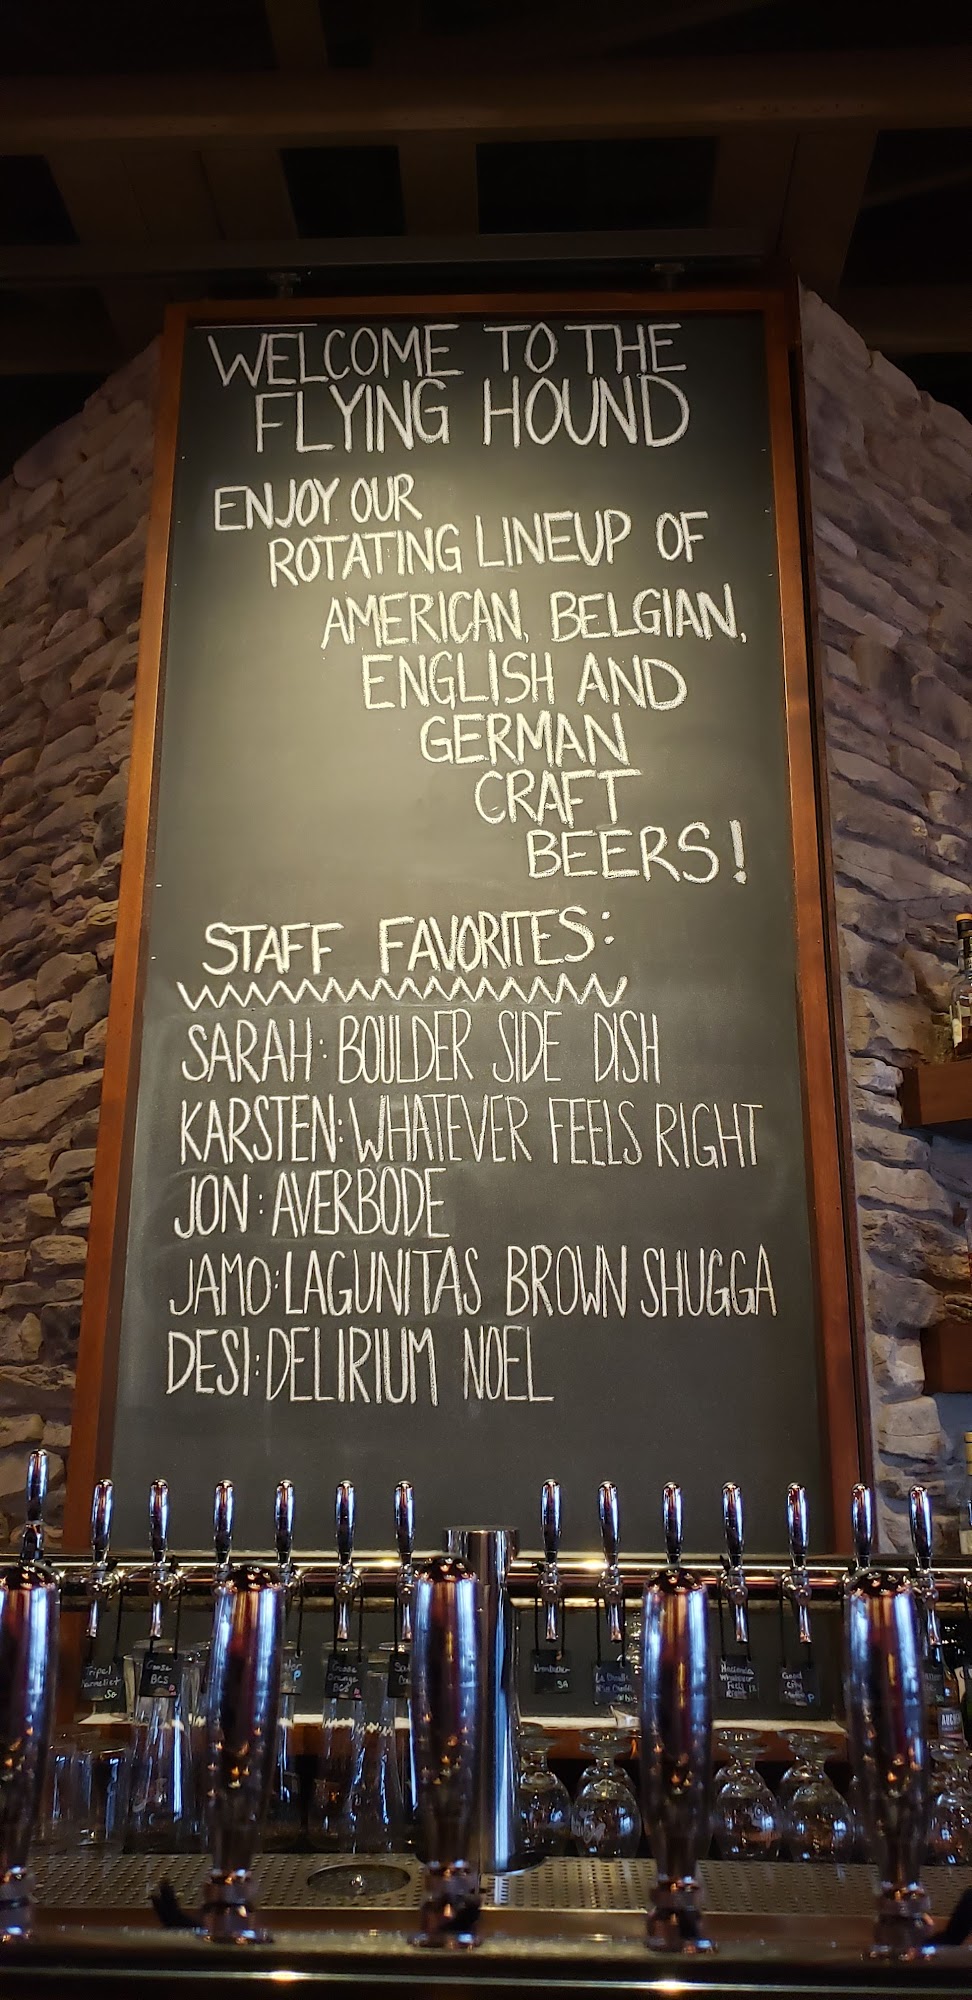 WELCOME TO THE
FLYING HOUND
ENJOY OUR
ROTATING LINEUP OF
AMERICAN, BELGIAN,
ENGLISH AND
GERMAN
CRAFT
BEERS!
STAFF FAVORITES:
SARAH: BOULDER SIDE DISH
KARSTEN: WHATEVER FEELS RIGHT
JON: AVERBODE
JAMO: LAGUNITAS BROWN SHUGGA
DESI: DELIRIUM NOEL
Tripel
Goose
BCS
Goose
Orange
BCS
Whatever
Feels
Right
Good
City